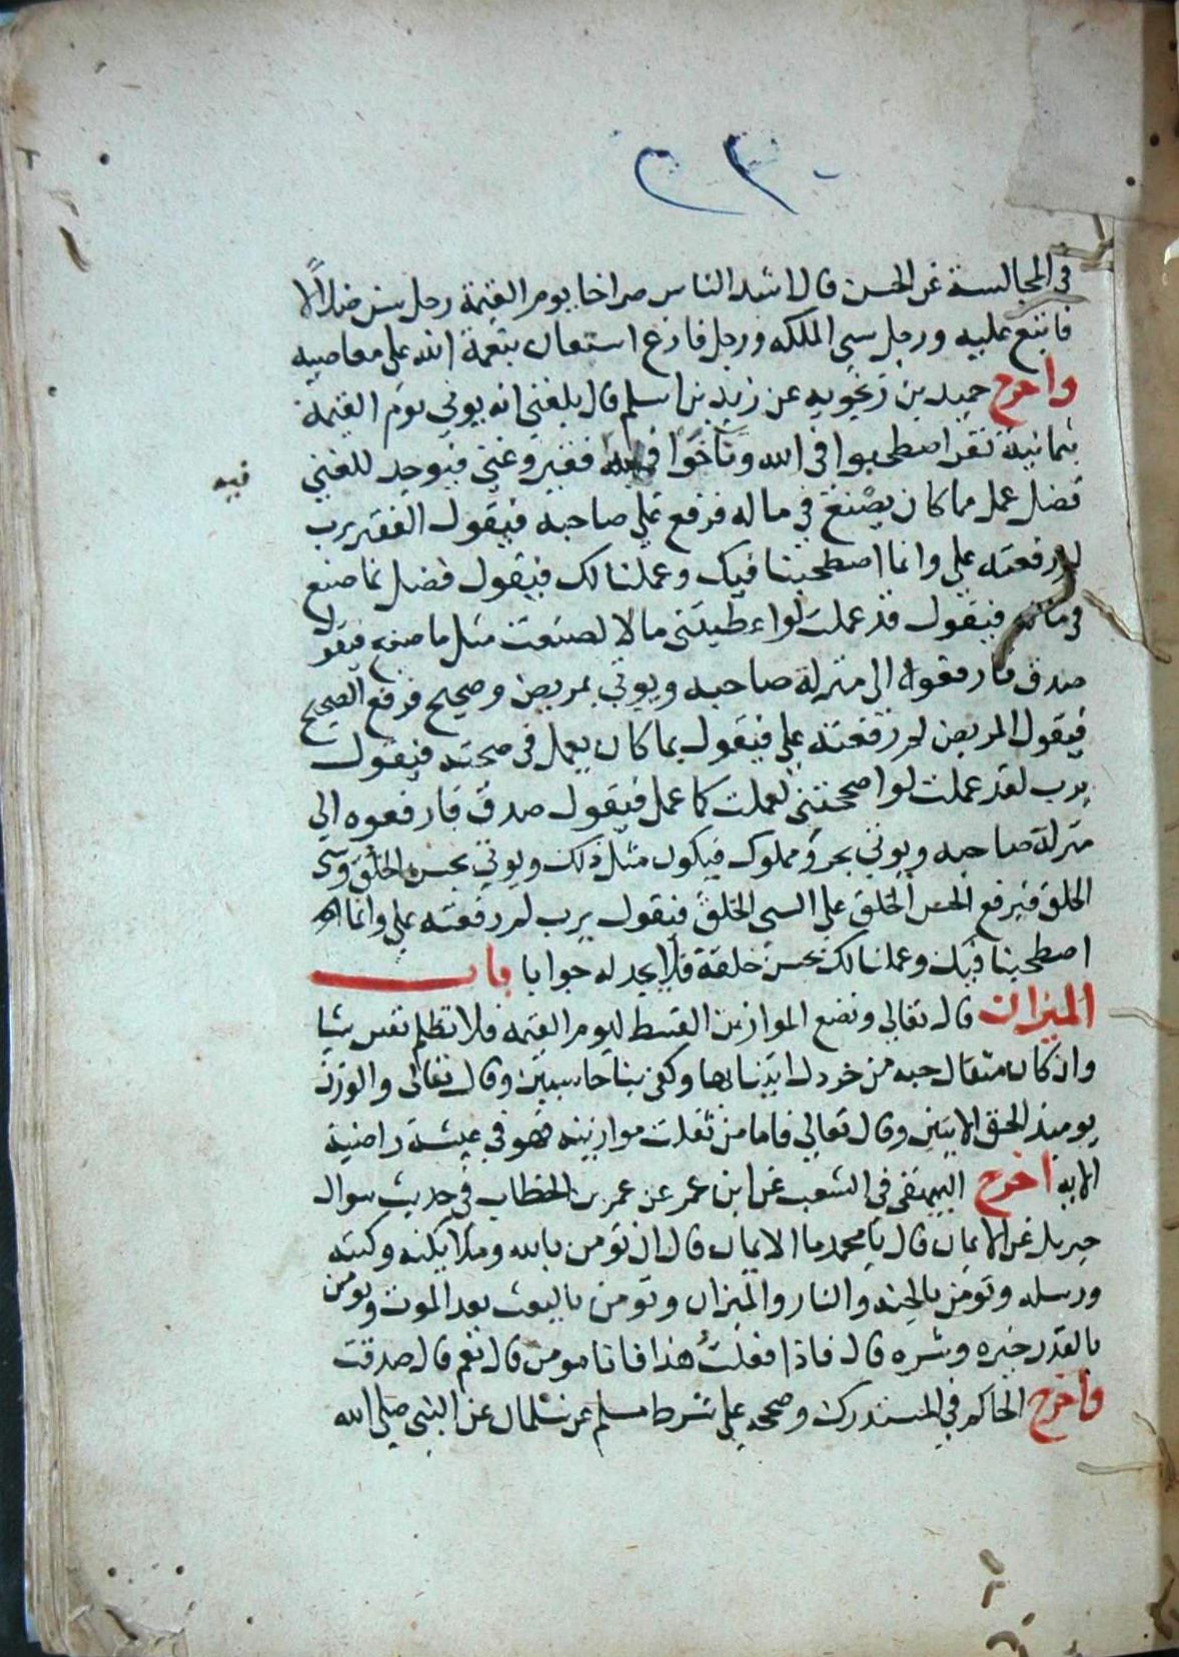 في المجالسة عن الحسن قال اشد الناس صراخا يوم القيمة رجل سن ضلالا
فاتبع عليه ورجل سي الملكه ورجل فارغ استعان بنعمة الله على معاصيه
واخرج حميد بن زنجويه عن زيد بن اسلم قال بلغني انه يوتي يوم القيمة
بثمانية نفر اصطحبوا في الله وتآخوا فيه فقير وغني فيوجد للغني
فيه
فضل عمل مما كان يصنع في ماله فرفع على صاحبه فيقول الفقير يرب
لم رفعته علي وانما اصطحبنا فيك وعملنا لك فيقول فضل بما صنع
في ماله فيقول قد عملت لو اعطيتني مالا لصنعت مثل ما صنع فيقول
صدق فارفعوه الى منزلة صاحبه ويوتي بمريض وصحيح فرفع الصحيح
فيقول المريض لم رفعته علي فيقول بما كان يعمل في صحته فيقول
يرب لقد عملت لو اصححتني لعملت كما عمل فيقول صدق فارفعوه الي
منزلة صاحبه ويوتي بحر ومملوك فيكون مثل ذلك ويوتي بحسن الخلق وسي
الخلق فيرفع الحسن الخلق علي السي الخلق فيقول يرب لم رفعته علي وانما
اصطحبنا فيك وعملنا لك بحسن خلقة فلا يجد له جوابا باب
الميزان قال تعالي ونضع الموازين القسط ليوم القيمه فلا تظلم نفس شيا
وان كان مثقال حبه من خردل اتينا بها وكفى بنا حاسبين وقال تعالى والوزن
يوميذ الحق الايتين وقال تعالي فاما من ثقلت موازينه فهو في عيشة راضية
الايه اخرج البيهقي في الشعب عن ابن عمر عن عمر بن الخطاب في حديث سوال
جبريل عن الايمان قال يا محمد ما الايمان قال ان تومن بالله وملايكته وكتبه
ورسله وتومن بالجنه والنار والميزان وتومن بالبعث بعد الموت وتومن
بالقدر خيره وشره قال فاذا فعلت هذا فانا مومن قال نعم قال صدقت
واخرج الحاكم في المستدرك وصححه علي شرط مسلم عن سلمان عن النبي صلي الله